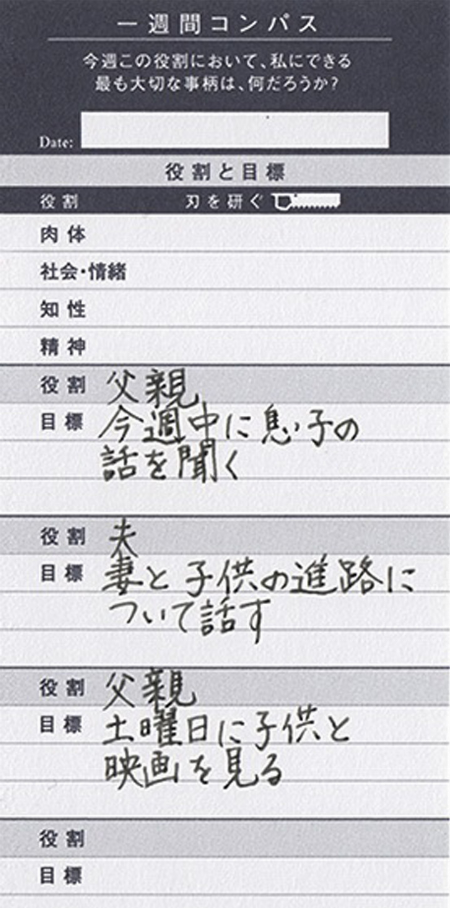 一週間コンパス
今週この役割において、私にできる
最も大切な事柄は、何だろうか?
Date:
役割と目標
役割 刃を研ぐ
肉体
社会・情緒
知性
精神
役割 父親
目標 今週中に息子の
話を聞く
役割 夫
目標 妻と子供の進路に
ついて話す
役割 父親
目標 土曜日に子供と
映画を見る
役割
目標